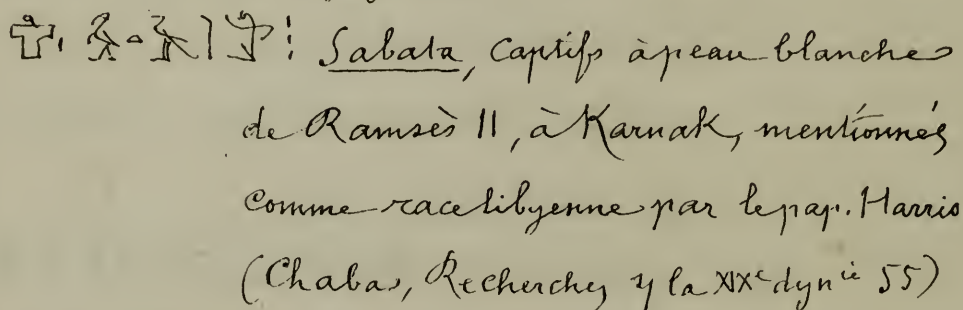 Sabata, Captifs à peau blanche
de Ramsès II, à Karnak, mentionnés
comme race libyenne par le pap. Harris
(Chabas, Recherches la XIXe dynie 55)